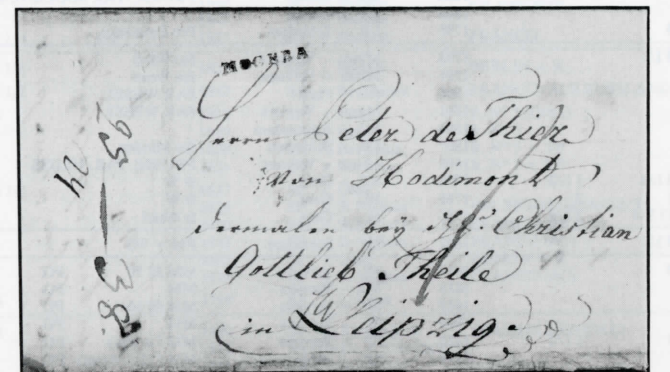 МОСКВА
Herrn Peter de Thier
von Hodimont
dermalen bey Hr. Christian
Gottlieb Theile
in Leipzig.
95 — 38.
24